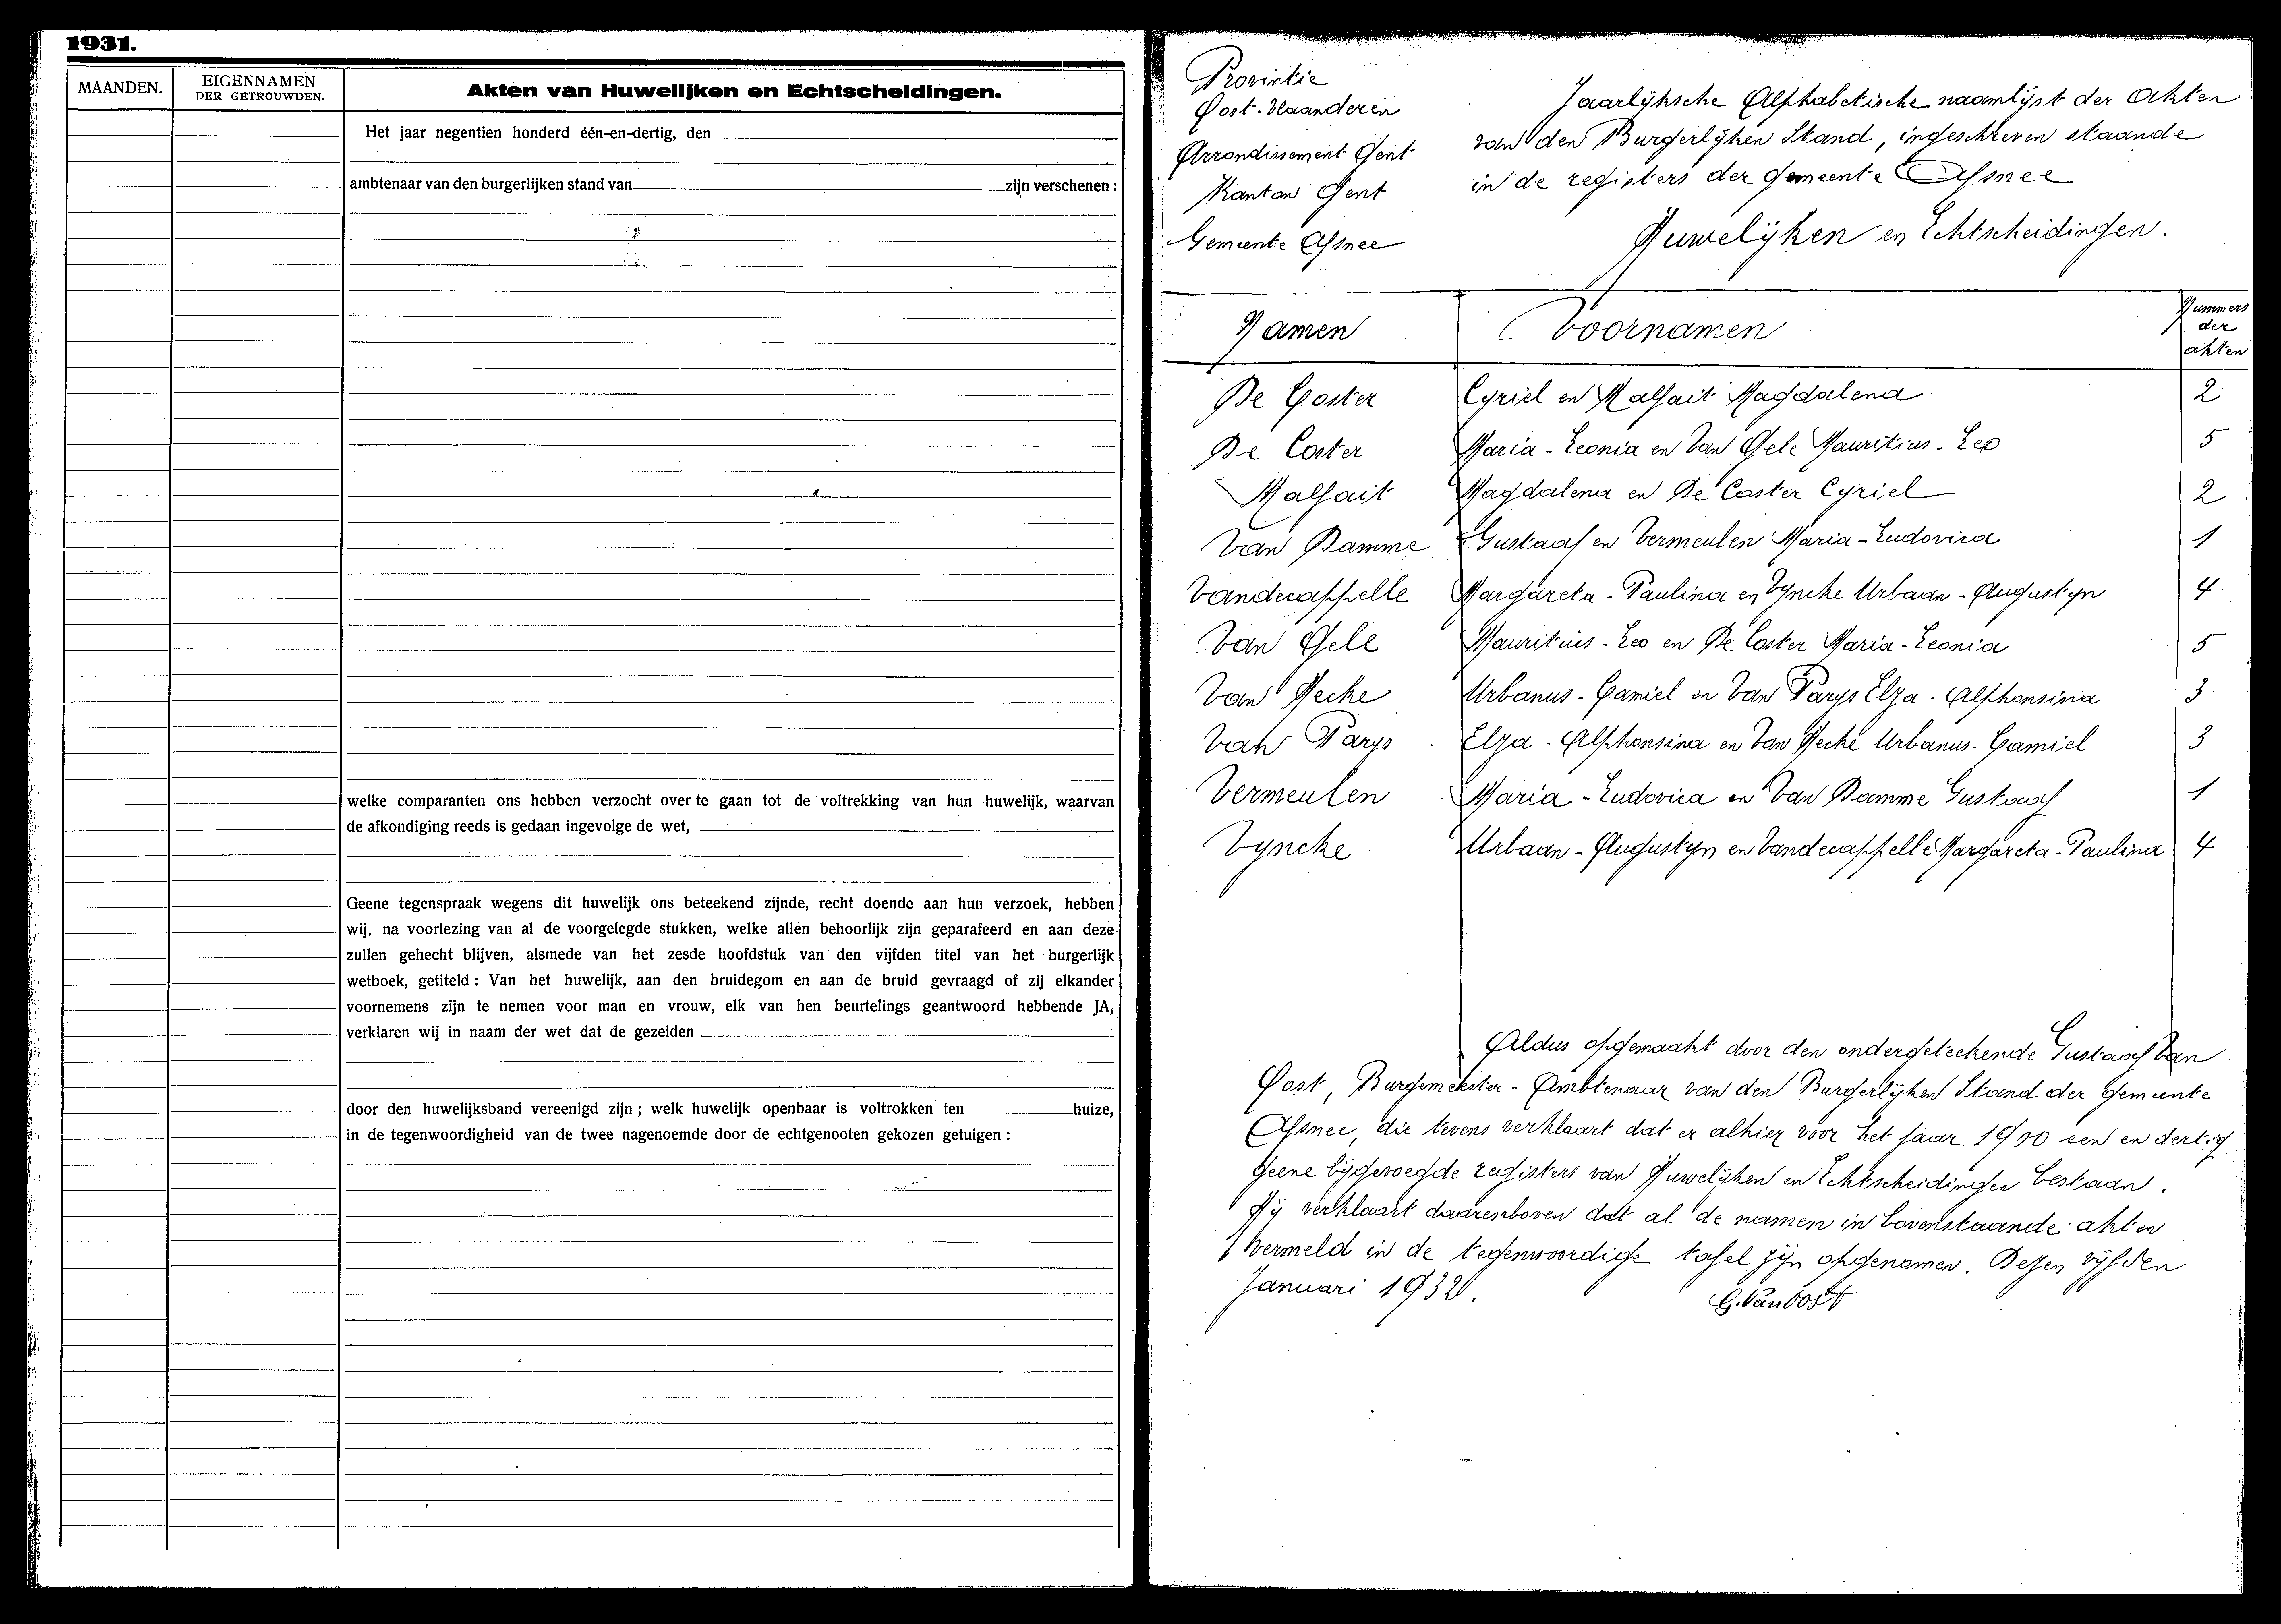 1931.
MAANDEN.
EIGENNAMEN
DER GETROUWDEN.
Akten van Huwelijken en Echtscheidingen.
Het jaar negentien honderd één-en-dertig, den
ambtenaar van den burgerlijken stand van zijn verschenen :
welke comparanten ons hebben verzocht over te gaan tot de voltrekking van hun huwelijk, waarvan
de afkondiging reeds is gedaan ingevolge de wet,
Geene tegenspraak wegens dit huwelijk ons beteekend zijnde, recht doende aan hun verzoek, hebben
wij, na voorlezing van al de voorgelegde stukken, welke allen behoorlijk zijn geparafeerd en aan deze
zullen gehecht blijven, alsmede van het zesde hoofdstuk van den vijfden titel van het burgerlijk
wetboek, getiteld : Van het huwelijk, aan den bruidegom en aan de bruid gevraagd of zij elkander
voornemens zijn te nemen voor man en vrouw, elk van hen beurtelings geantwoord hebbende JA,
verklaren wij in naam der wet dat de gezeiden
door den huwelijksband vereenigd zijn ; welk huwelijk openbaar is voltrokken ten huize,
in de tegenwoordigheid van de twee nagenoemde door de echtgenooten gekozen getuigen :
Provintie
Oost-Vlaanderen
Arrondissement Gent
Kanton Gent
Gemeente Afsnee
Jaarlijksche Alphabetische naamlijst der Akten
van den Burgerlijken Stand, ingeschreven staande
in de registers der Gemeente Afsnee
Huwelijken en Echtscheidingen.
Namen Voornamen Nummers
der
akten
De Coster Cyriel en Malfait Magdalena 2
De Coster Maria-Leonia en Van Gele Mauritius-Leo 5
Malfait Magdalena en De Coster Cyriel 2
Van Damme Gustaaf en Vermeulen Maria-Ludovica 1
Vandecappelle Margareta-Paulina en Vyncke Urbaan-Augustyn 4
Van Gele Mauritius-Leo en De Coster Maria-Leonia 5
Van Hecke Urbanus-Camiel en Van Parys Elza-Alphonsina 3
Van Parys Elza-Alphonsina en Van Hecke Urbanus-Camiel 3
Vermeulen Maria-Ludovica en Van Damme Gustaaf 1
Vyncke Urbaan-Augustyn en Vandecappelle Margareta-Paulina 4
Aldus opgemaakt door den ondergeteekende Gustaaf Van
Oost, Burgemeester-Ambtenaar van den Burgerlijken Stand der Gemeente
Afsnee, die tevens verklaart dat er alhier voor het jaar 1900 een en dertig
geene bijgevoegde registers van Huwelijken en Echtscheidingen bestaan.
Hij verklaart daarenboven dat al de namen in bovenstaande akten
vermeld in de tegenwoordige tafel zijn opgenomen. Dezen vijfden
Januari 1932.
G. Van Oost